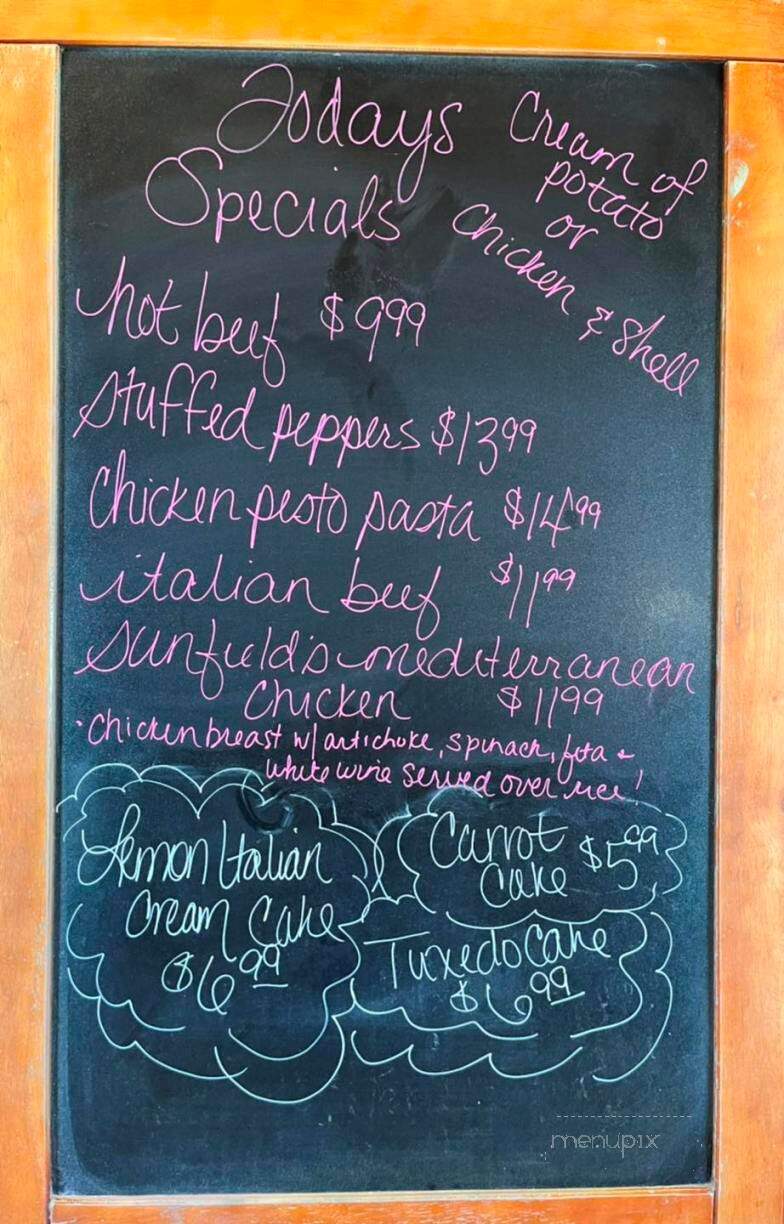 Todays
Specials
Cream of
potato
or
Chicken & Shell
hot beef $9.99
stuffed peppers $13.99
Chicken pesto pasta $14.99
italian beef $11.99
Sunfield's mediterranean
Chicken $11.99
• Chicken breast w/ artichoke, spinach, feta &
white wine served over rice!
Lemon Italian
Cream Cake
$6.99
Carrot
Cake $5.99
Tuxedo Cake
$6.99
menupix